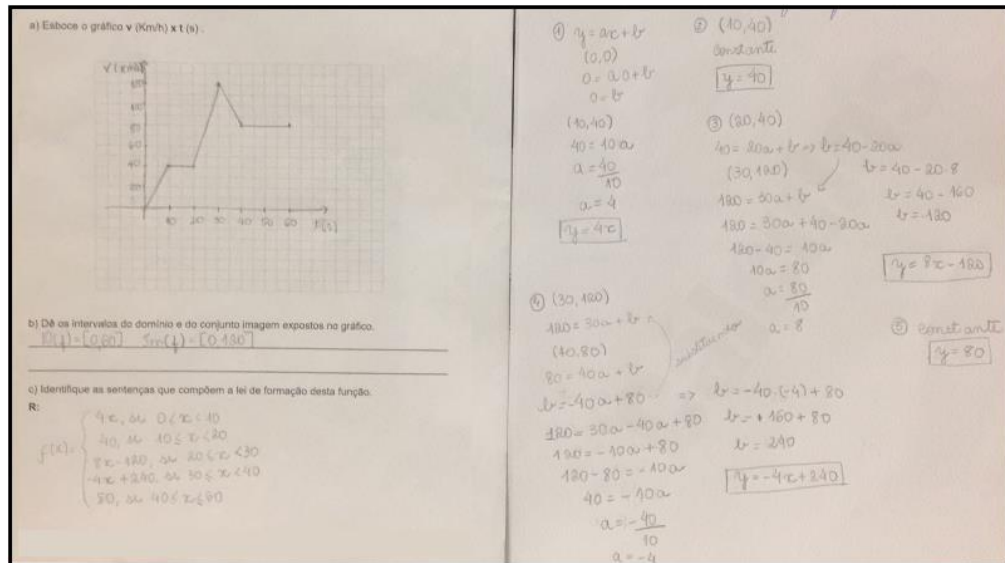 a) Esboce o gráfico v (Km/h) x t (s) .
120
100
80
60
40
20
10 20 30 40 50 60 t[s]
b) Dê os intervalos do domínio e do conjunto imagem expostos no gráfico.
D(f)=[0,60] Im(f)=[0,120]
c) Identifique as sentenças que compõem a lei de formação desta função.
R:
f(x)=
4x, se 0≤x<10
40, se 10≤x<20
8x-120, se 20≤x<30
-4x+240, se 30≤x<40
80, se 40≤x≤60
① y=ax+b
(0,0)
0=a0+b
0=b
(10,40)
40=10a
a=40/10
a=4
y=4x
② (10,40)
constante
y=40
③ (20,40)
40=20a+b => b=40-20a
(30,120)
120=30a+b
120=30a+40-20a
120-40=10a
10a=80
a=80/10
a=8
b=40-20·8
b=40-160
b=-120
y=8x-120
④ (30,120)
120=30a+b
(40,80)
80=40a+b
b=-40a+80
substituindo
120=30a-40a+80
120=-10a+80
120-80=-10a
40=-10a
a=-40/10
a=-4
=> b=-40·(-4)+80
b=+160+80
b=240
y=-4x+240
⑤ constante
y=80